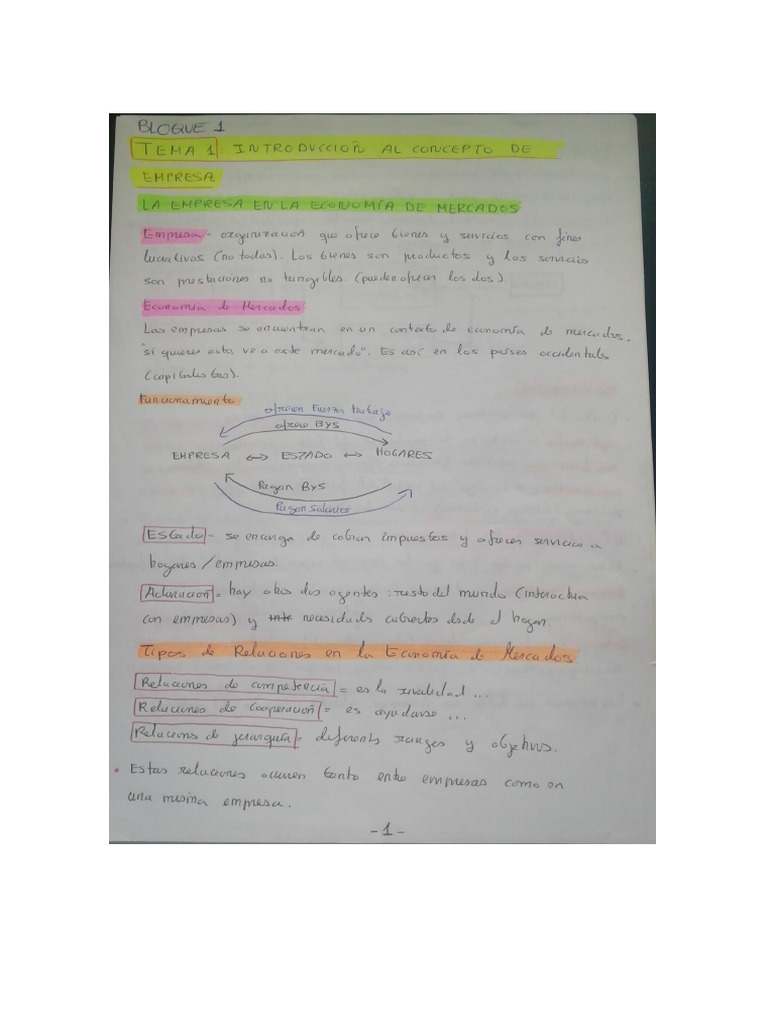 BLOQUE 1
TEMA 1: INTRODUCCIÓN AL CONCEPTO DE
EMPRESA
LA EMPRESA EN LA ECONOMÍA DE MERCADOS
Empresa = organización que ofrece bienes y servicios con fines
lucrativos (no todas). Los bienes son productos y los servicios
son prestaciones no tangibles. (pueden ofrecer los dos).
Economía de Mercados
Las empresas se encuentran en un contexto de economía de mercados,
"si quieres esto, ve a este mercado". Es así en los países occidentales
(capitalistas).
Funcionamiento
ofrecen Fuerza trabajo
ofrece BYS
EMPRESA ↔ ESTADO ↔ HOGARES
Pagan BYS
Pagan Salarios
Estado = se encarga de cobrar impuestos y ofrecer servicios a
hogares/empresas.
Aclaración = hay otros dos agentes: resto del mundo (interactúa
con empresas) y necesidades cubiertas desde el hogar.
Tipos de Relaciones en la Economía de Mercados
Relaciones de competencia = es la rivalidad ...
Relaciones de Cooperación = es ayudarse ...
Relaciones de jerarquía = diferentes rangos y objetivos.
• Estas relaciones ocurren tanto entre empresas como en
una misma empresa.
-1-